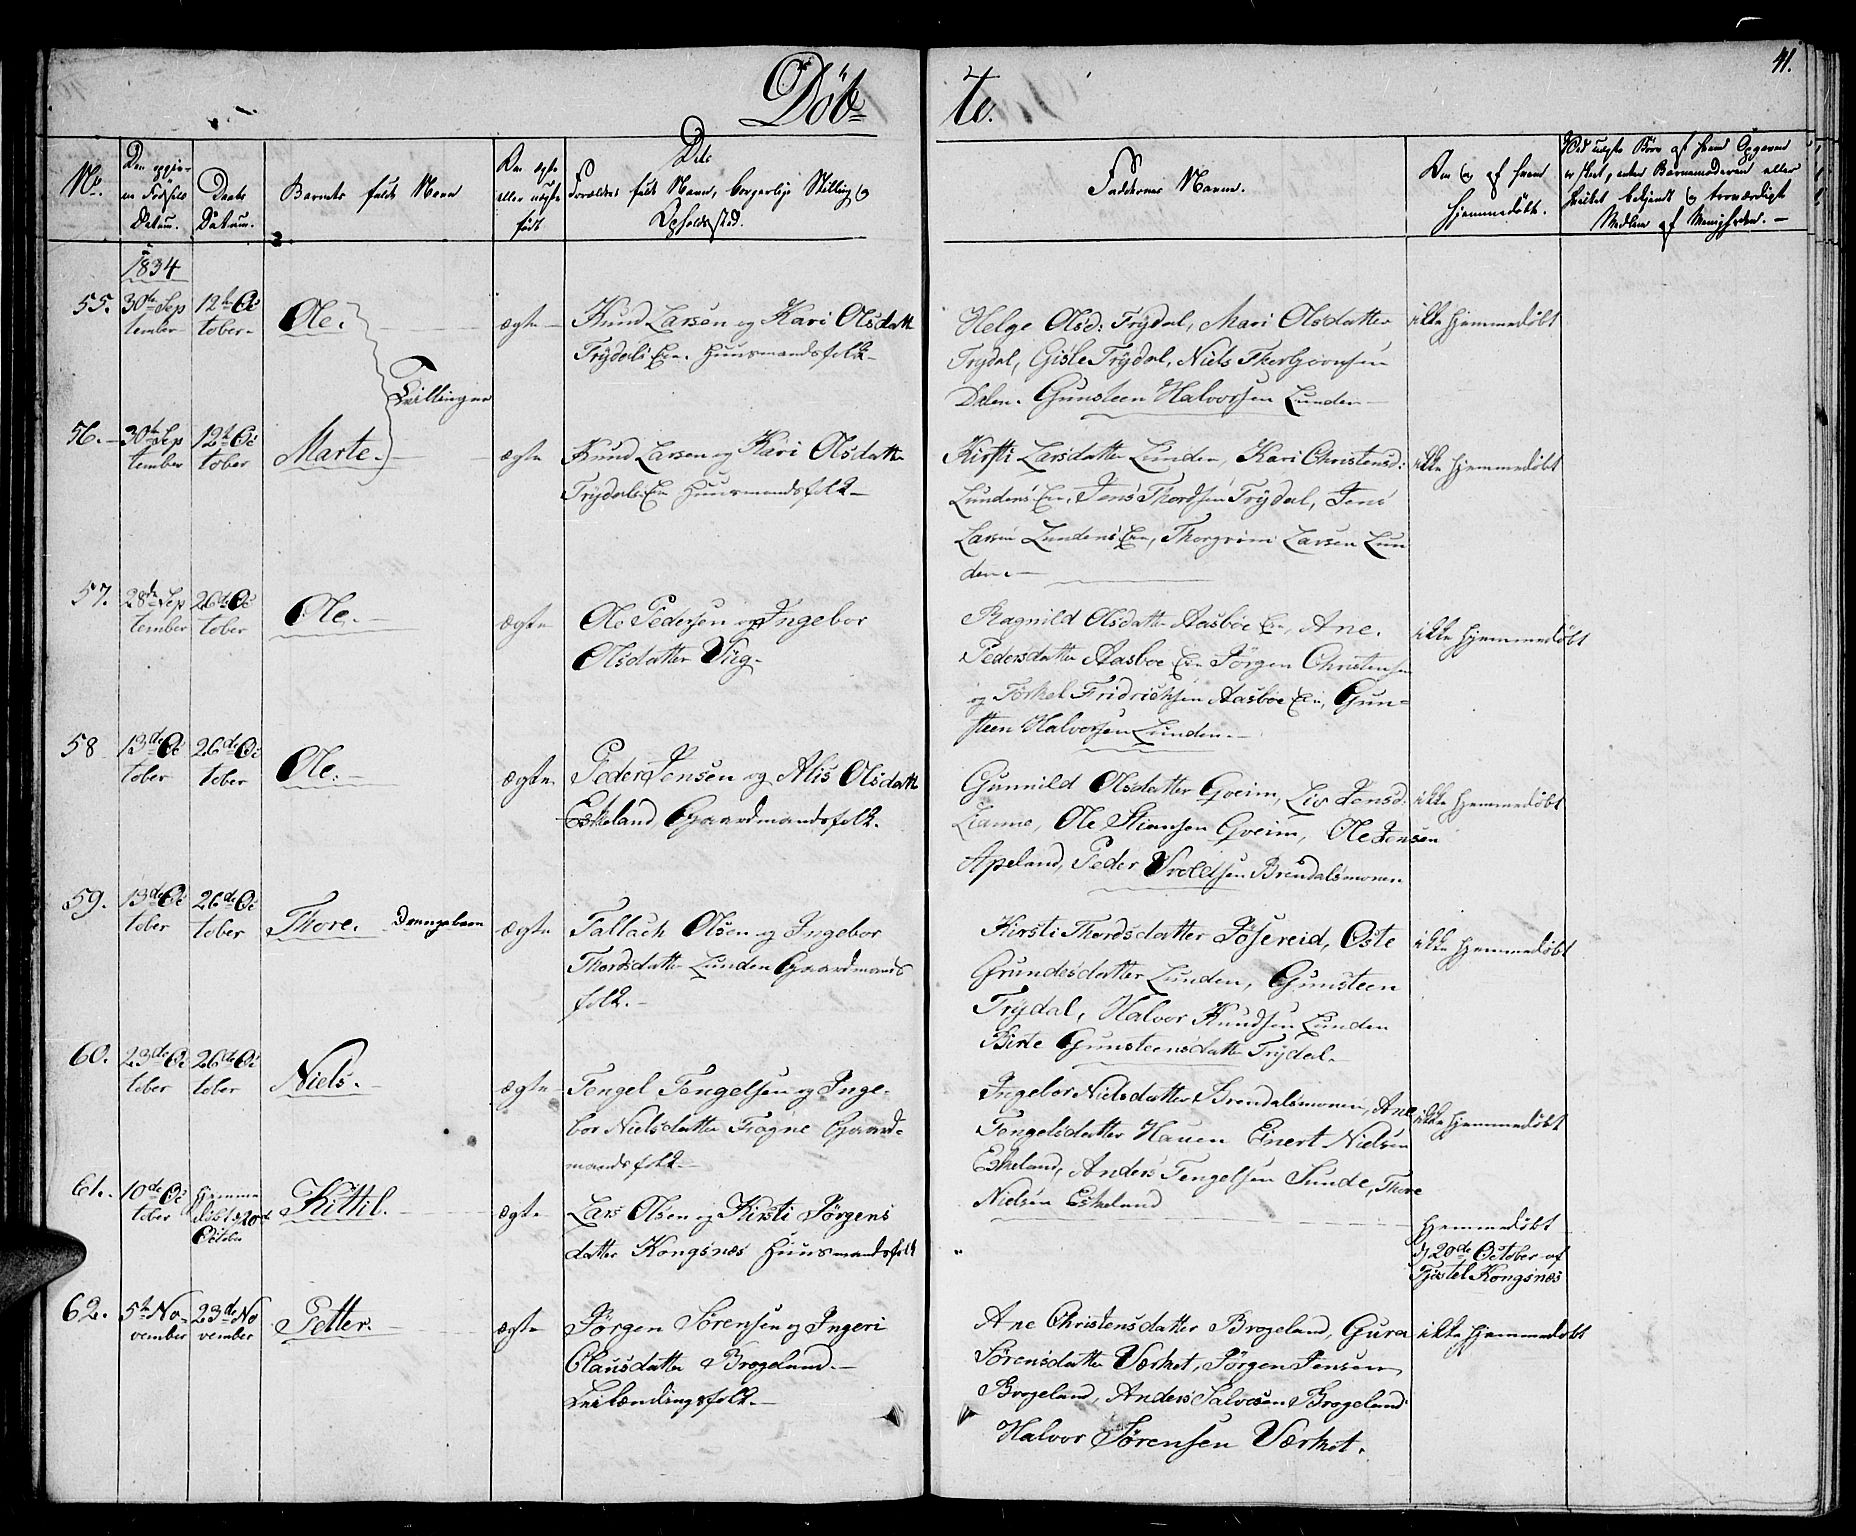 41.
Döbte.
No.
Den opgivne Fødsels Datum.
Daabs Datum.
Barnets fulde Navn
Om ægte eller uægte født
Dets Forældres fulde Navn, borgerlige Stilling og Opholdssted.
Faddernes Navne.
Om og af hvem hjemmedøbt.
Ved uægte Børn af hvem Opgaven er skeet, enten Barnemoderen eller hvilket bekjendt og troværdigt Medlem af Menigheden.
1834
55. 30te September 12te October Ole. ægte
Knud Larsen og Kari Olsdatt
Trydals Eie. Huusmandsfolk
Helge Olsd: Trydal, Mari Olsdatter
Trydal, Gisle Trydal, Niels Thorbjørnsen
Dalen. Gunsteen Halvorsen Lunden
ikke hjemmedøbt
Tvillinger
56. 30te September 12te October Marte. ægte
Knud Larsen og Kari Olsdatt
Trydals Eie Huusmandsfolk
Kirsti Larsdatter Lunden, Kari Christensd:
Lundens Eie, Jens Thordsen Trydal, Jens
Larsen Lundens Eie, Thorgrim Larsen Lun
den.
ikke hjemmedøbt
57. 28de September 26de October Ole. ægte
Ole Pedersen og Ingebor
Olsdatter Viig.
Ragnild Olsdatter Aasbøe Eie, Ane
Pedersdatter Aasboe Eie Jörgen Christensen
og Törkel Fridrichsen Aasbøe Eie, Gun-
steen Halvorsen Lunden.
ikke hjemmedøbt
58 13de October 26de October Ole. ægte
Peder Jensen og Alis Olsdatt
Eskeland Gaardmandsfolk.
Gunnild Olsdatter Qveim, Liv Jensd:
Lianne, Ole Stiansen Qveim, Ole Jensen
Apeland, Peder Vroldsen Brendalsmonen
ikke hjemmedøbt
59. 13de October 26de October Thore. Drengebarn ægte
Tallach Olsen og Ingebor
Thordsdatter Lunden Gaardmands
folk.
Kirsti Thordsdatter Jösereid, Oste
Grundesdatter Lunden, Gunsteen
Trydal, Halvor Knudsen Lunden
Birte Gunsteensdatter Trydal.
ikke hjemmedøbt
60. 23de October 26de October Niels. ægte
Tengel Tengelsen og Inge-
bor Nielsdatter Trögne Gaard-
mandsfolk
Ingebor Nielsdatter Brendalsmonen, Ane
Tengelsdatter Hauen Einert Nielsen
Eskeland, Anders Tengelsen Sunde, Thore
Nielsen Eskeland
ikke hjemmedøbt
61. 10de October Hjemme døbt d 20de October Kittil. ægte
Lars Olsen og Kirsti Jörgens
datter Kongsnæs Huusmandsfolk
"
Hjemmedøbt
d 20de October af
Tjöstel Kongsnæs
62. 5te November 23de November Petter. ægte
Jörgen Sörensen og Ingeri
Clausdatter Brogeland.
Leilændingsfolk.
Ane Christensdatter Brogeland, Gura
Sörensdatter Værket, Jörgen Jensen
Brogeland, Anders Salvesen Brogeland
Halvor Sörensen Værket.
ikke hjemmedøbt